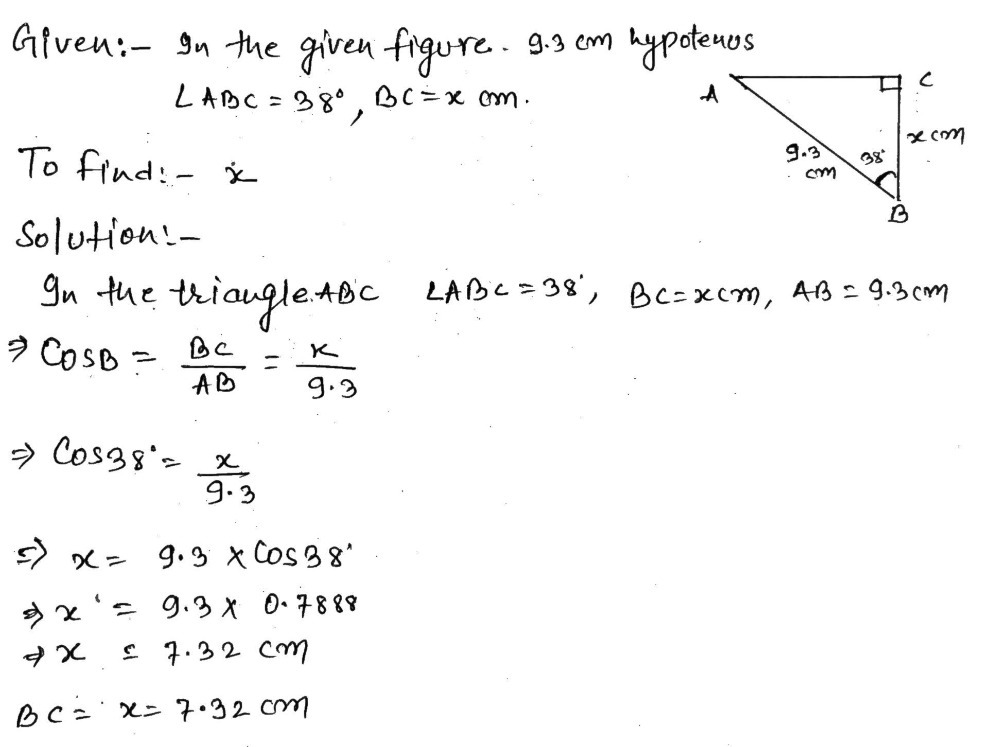 Given:- In the given figure. 9.3 cm hypotenus
∠ABC = 38°, BC = x cm.
A
C
x cm
9.3
cm
38°
B
To find:- x
Solution:-
In the triangle.ABC ∠ABC = 38°, BC = x cm, AB = 9.3 cm
⇒ CosB = BC/AB = x/9.3
⇒ Cos38° = x/9.3
⇒ x = 9.3 × Cos38°
⇒ x = 9.3 × 0.7888
⇒ x = 7.32 cm
BC = x = 7.32 cm